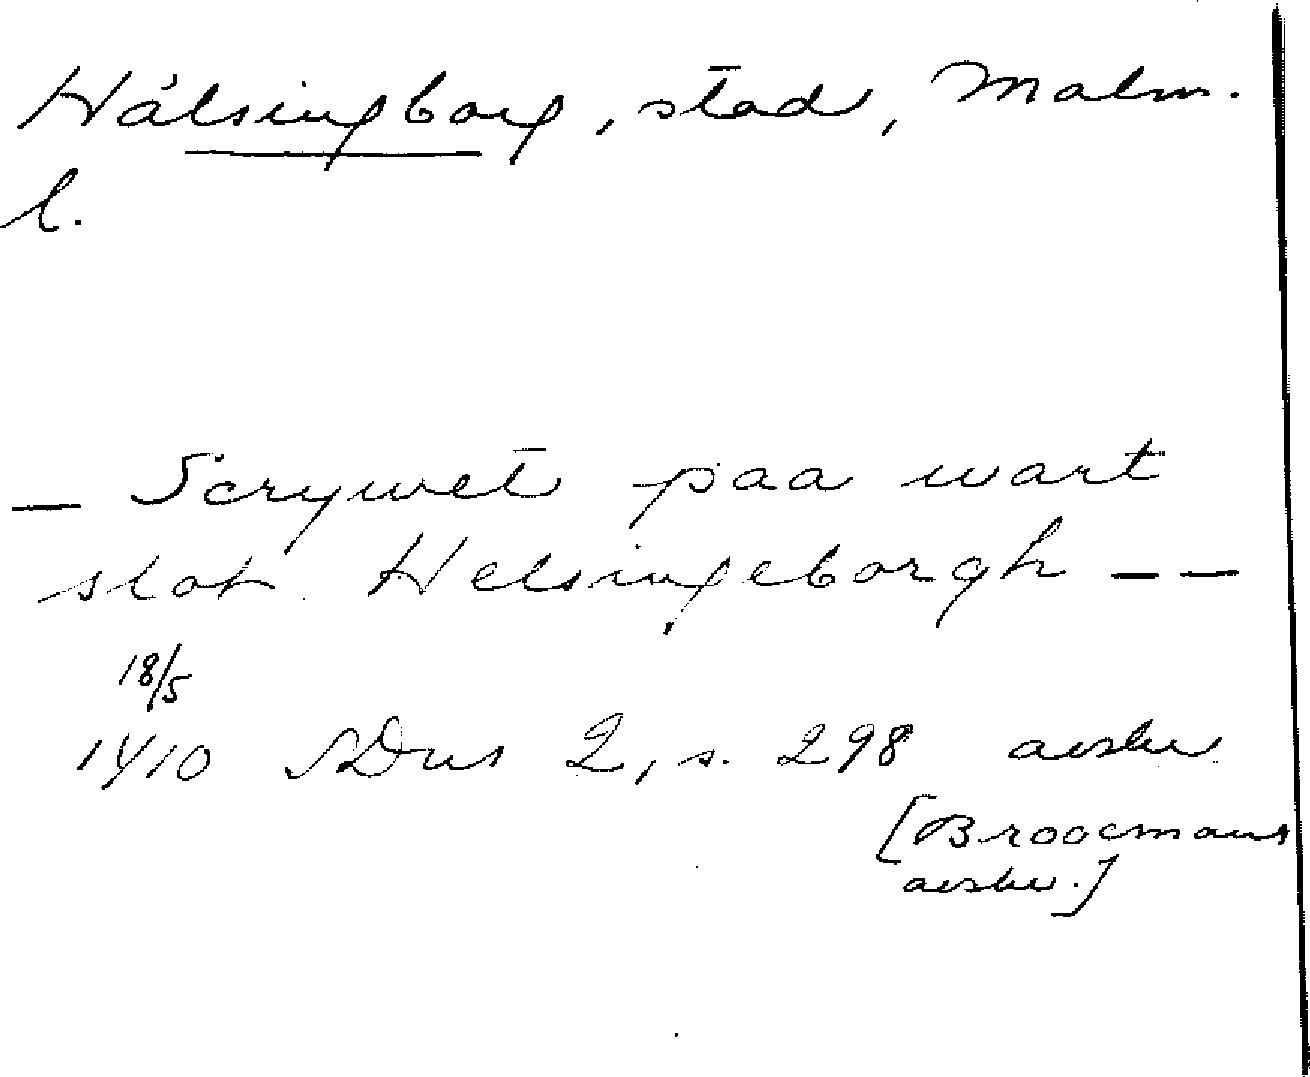 Hälsingborg, stad, Malm.
l.
— Scrywet paa wart
slot Helsingeborgh — —
18/5
1410 SDns 2, s. 298 avskr
[Broocmans
avskr.]